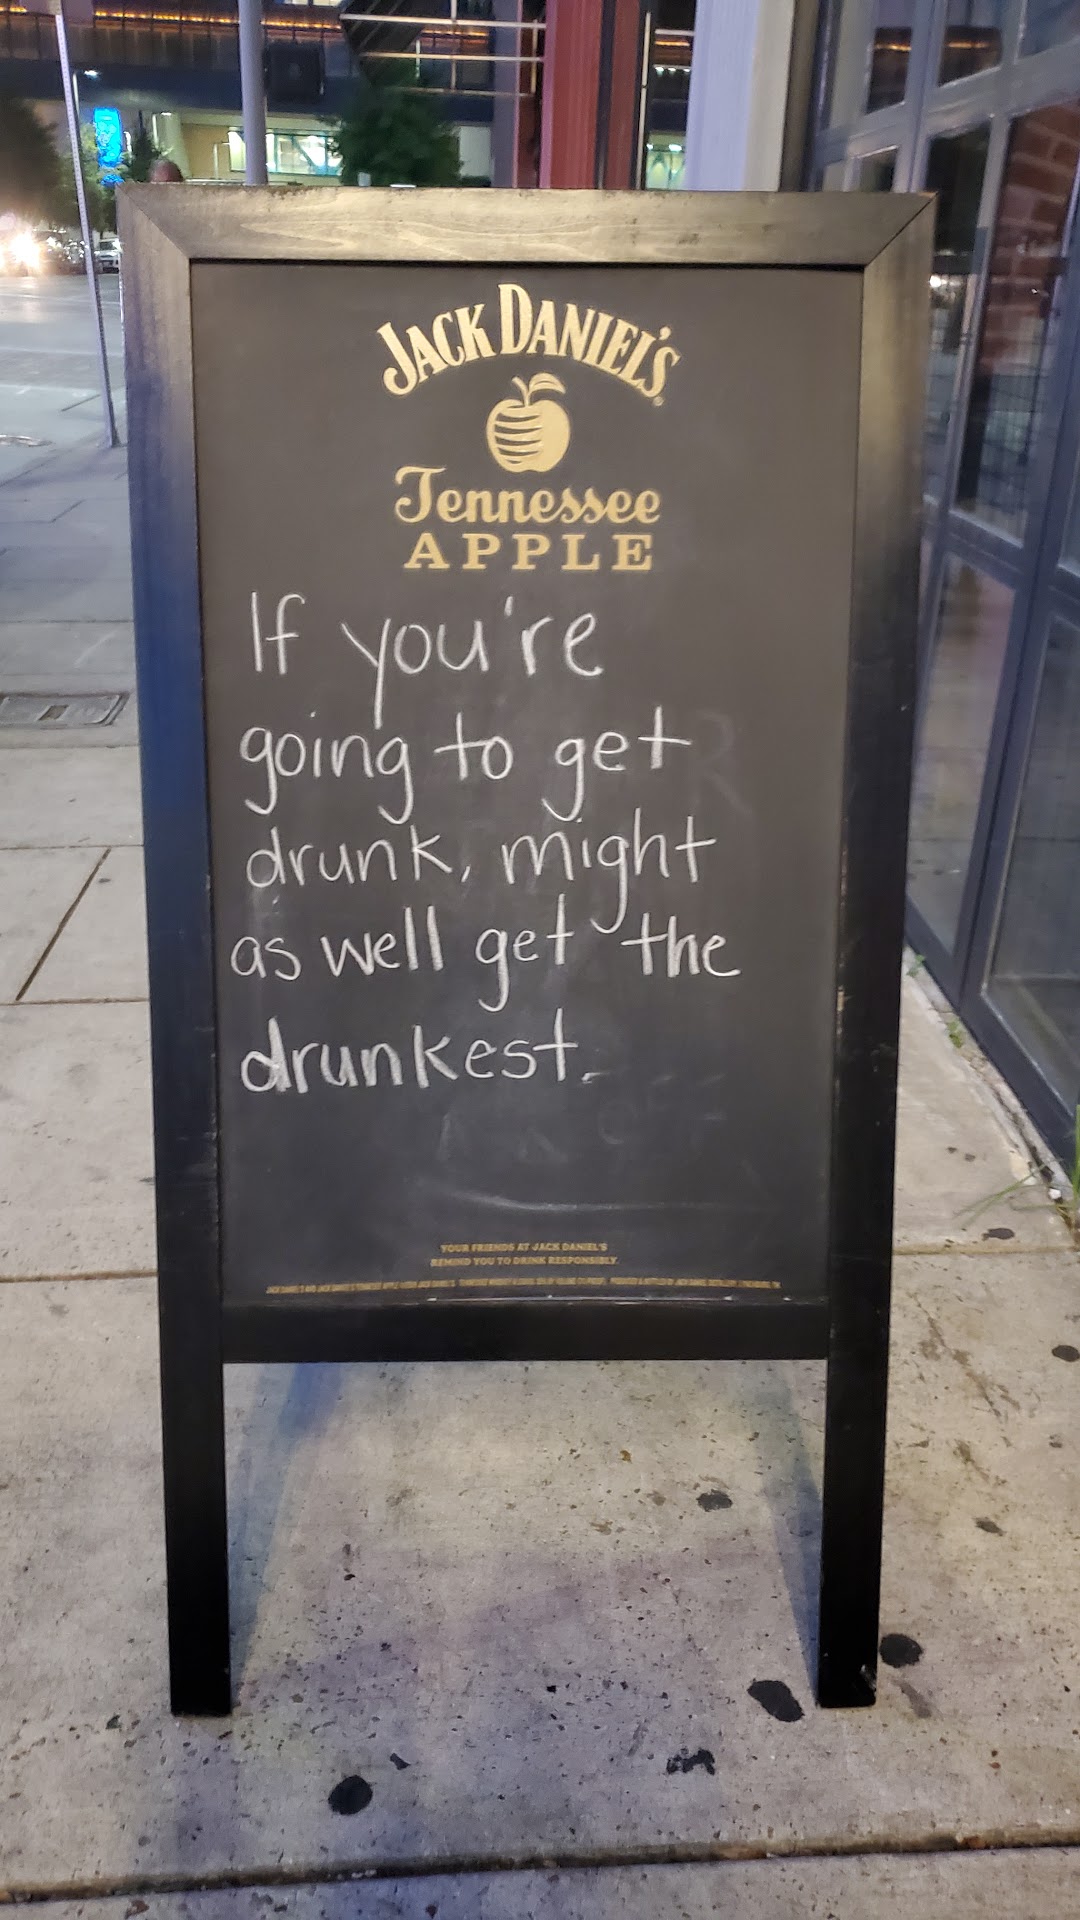 JACK DANIEL'S
Tennessee
APPLE
If you're
going to get
drunk, might
as well get the
drunkest.
YOUR FRIENDS AT JACK DANIEL'S
REMIND YOU TO DRINK RESPONSIBLY.